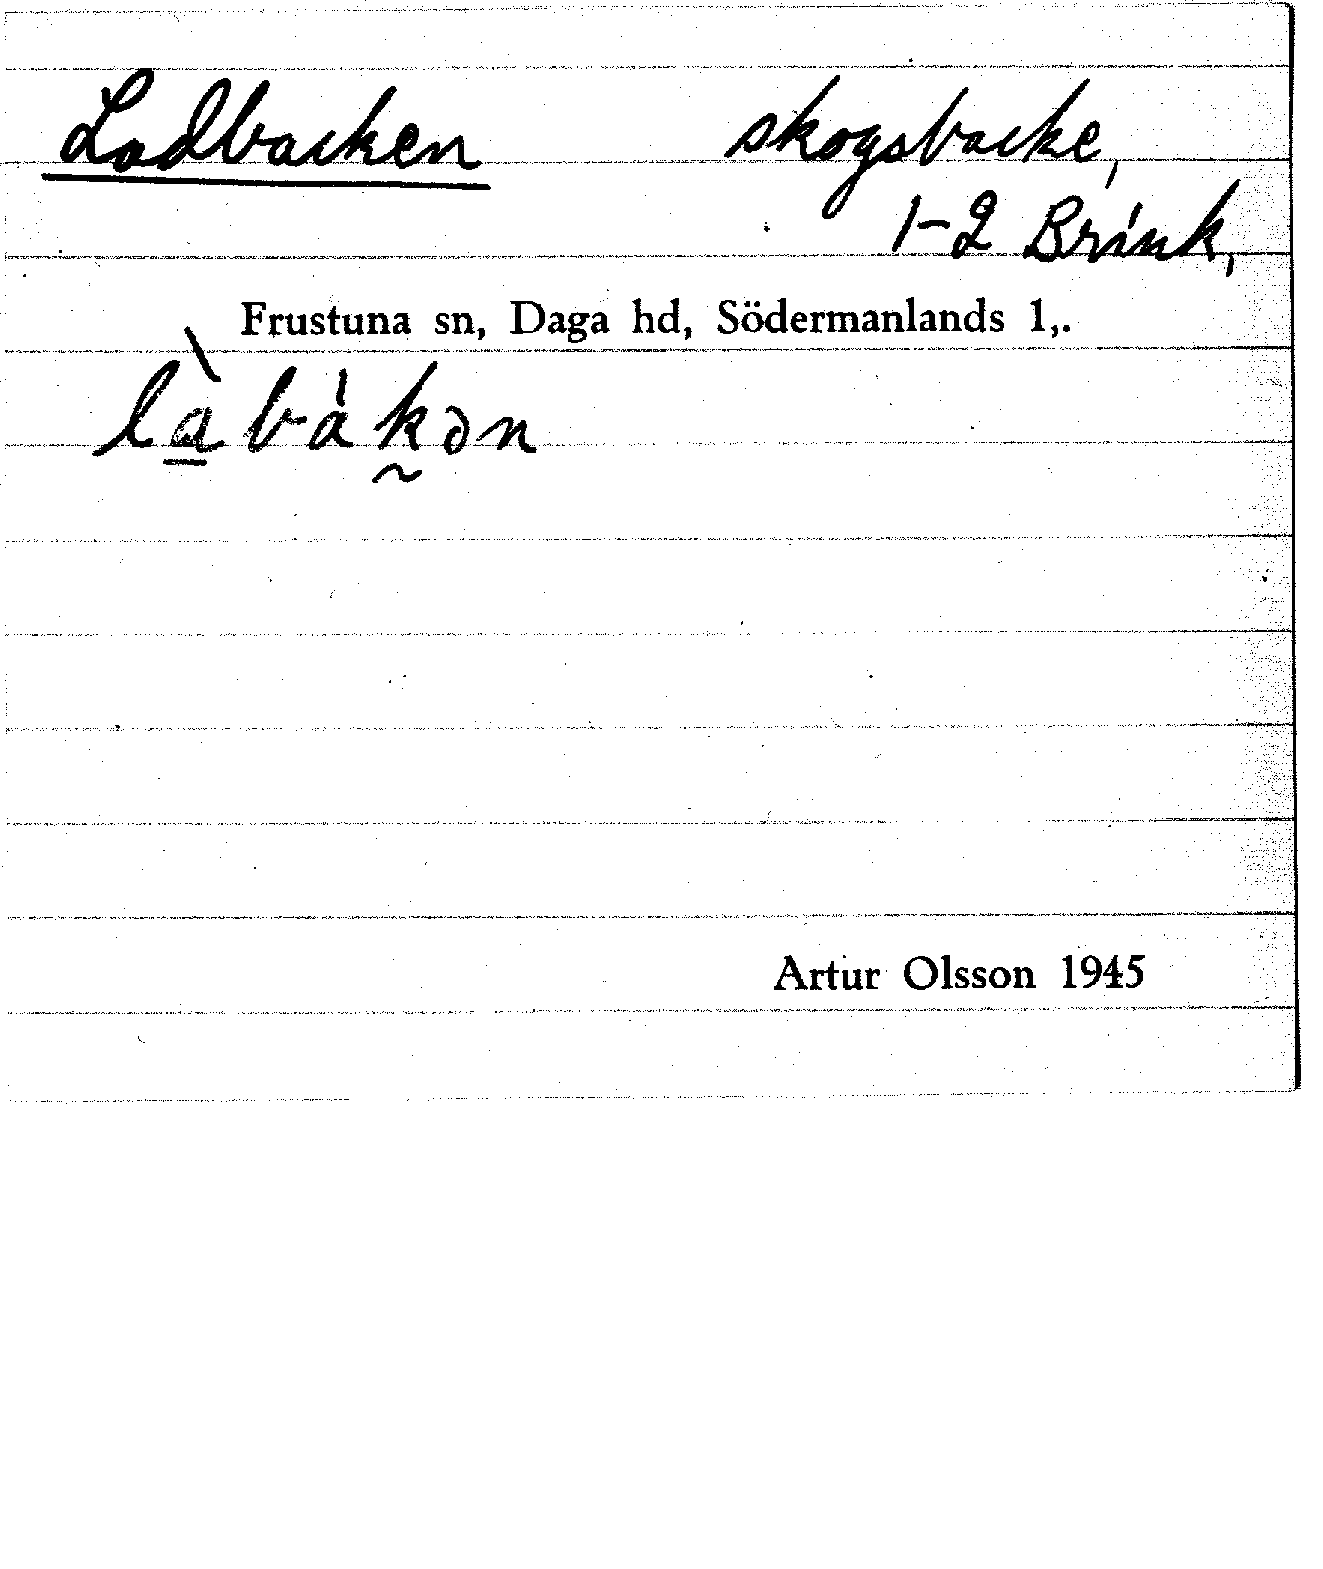 Ladbacken skogsbacke,
1-2 Brink,
Frustuna sn, Daga hd, Södermanlands l,.
là̱bàk̰ən
Artur Olsson 1945